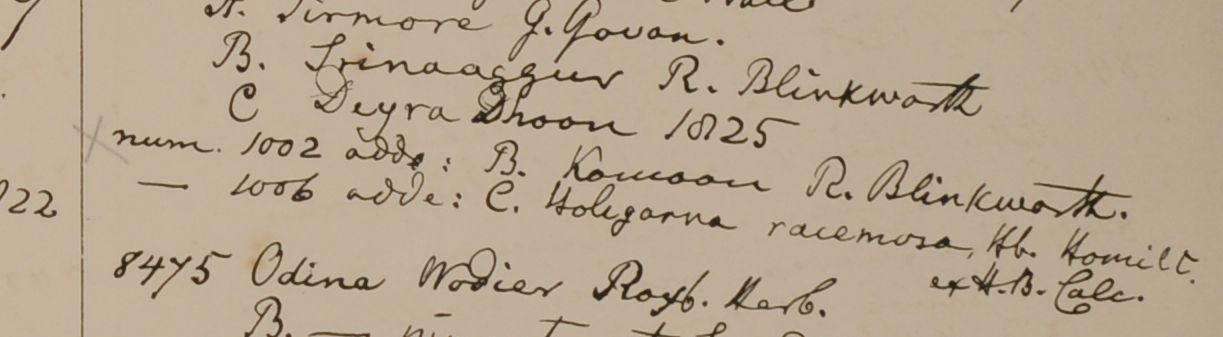 A. Sirmore G. Govan.
B. Srinaaggur R. Blinkworth
C Deyra Dhoon 1825
num. 1002 adde: B. Kamaon R. Blinkworth.
— 1006 adde: C. Holigarna racemosa, Hb. Hamilt.
ex H. B. Calc.
8475 Odina Wodier Roxb. Herb.
B. —
122